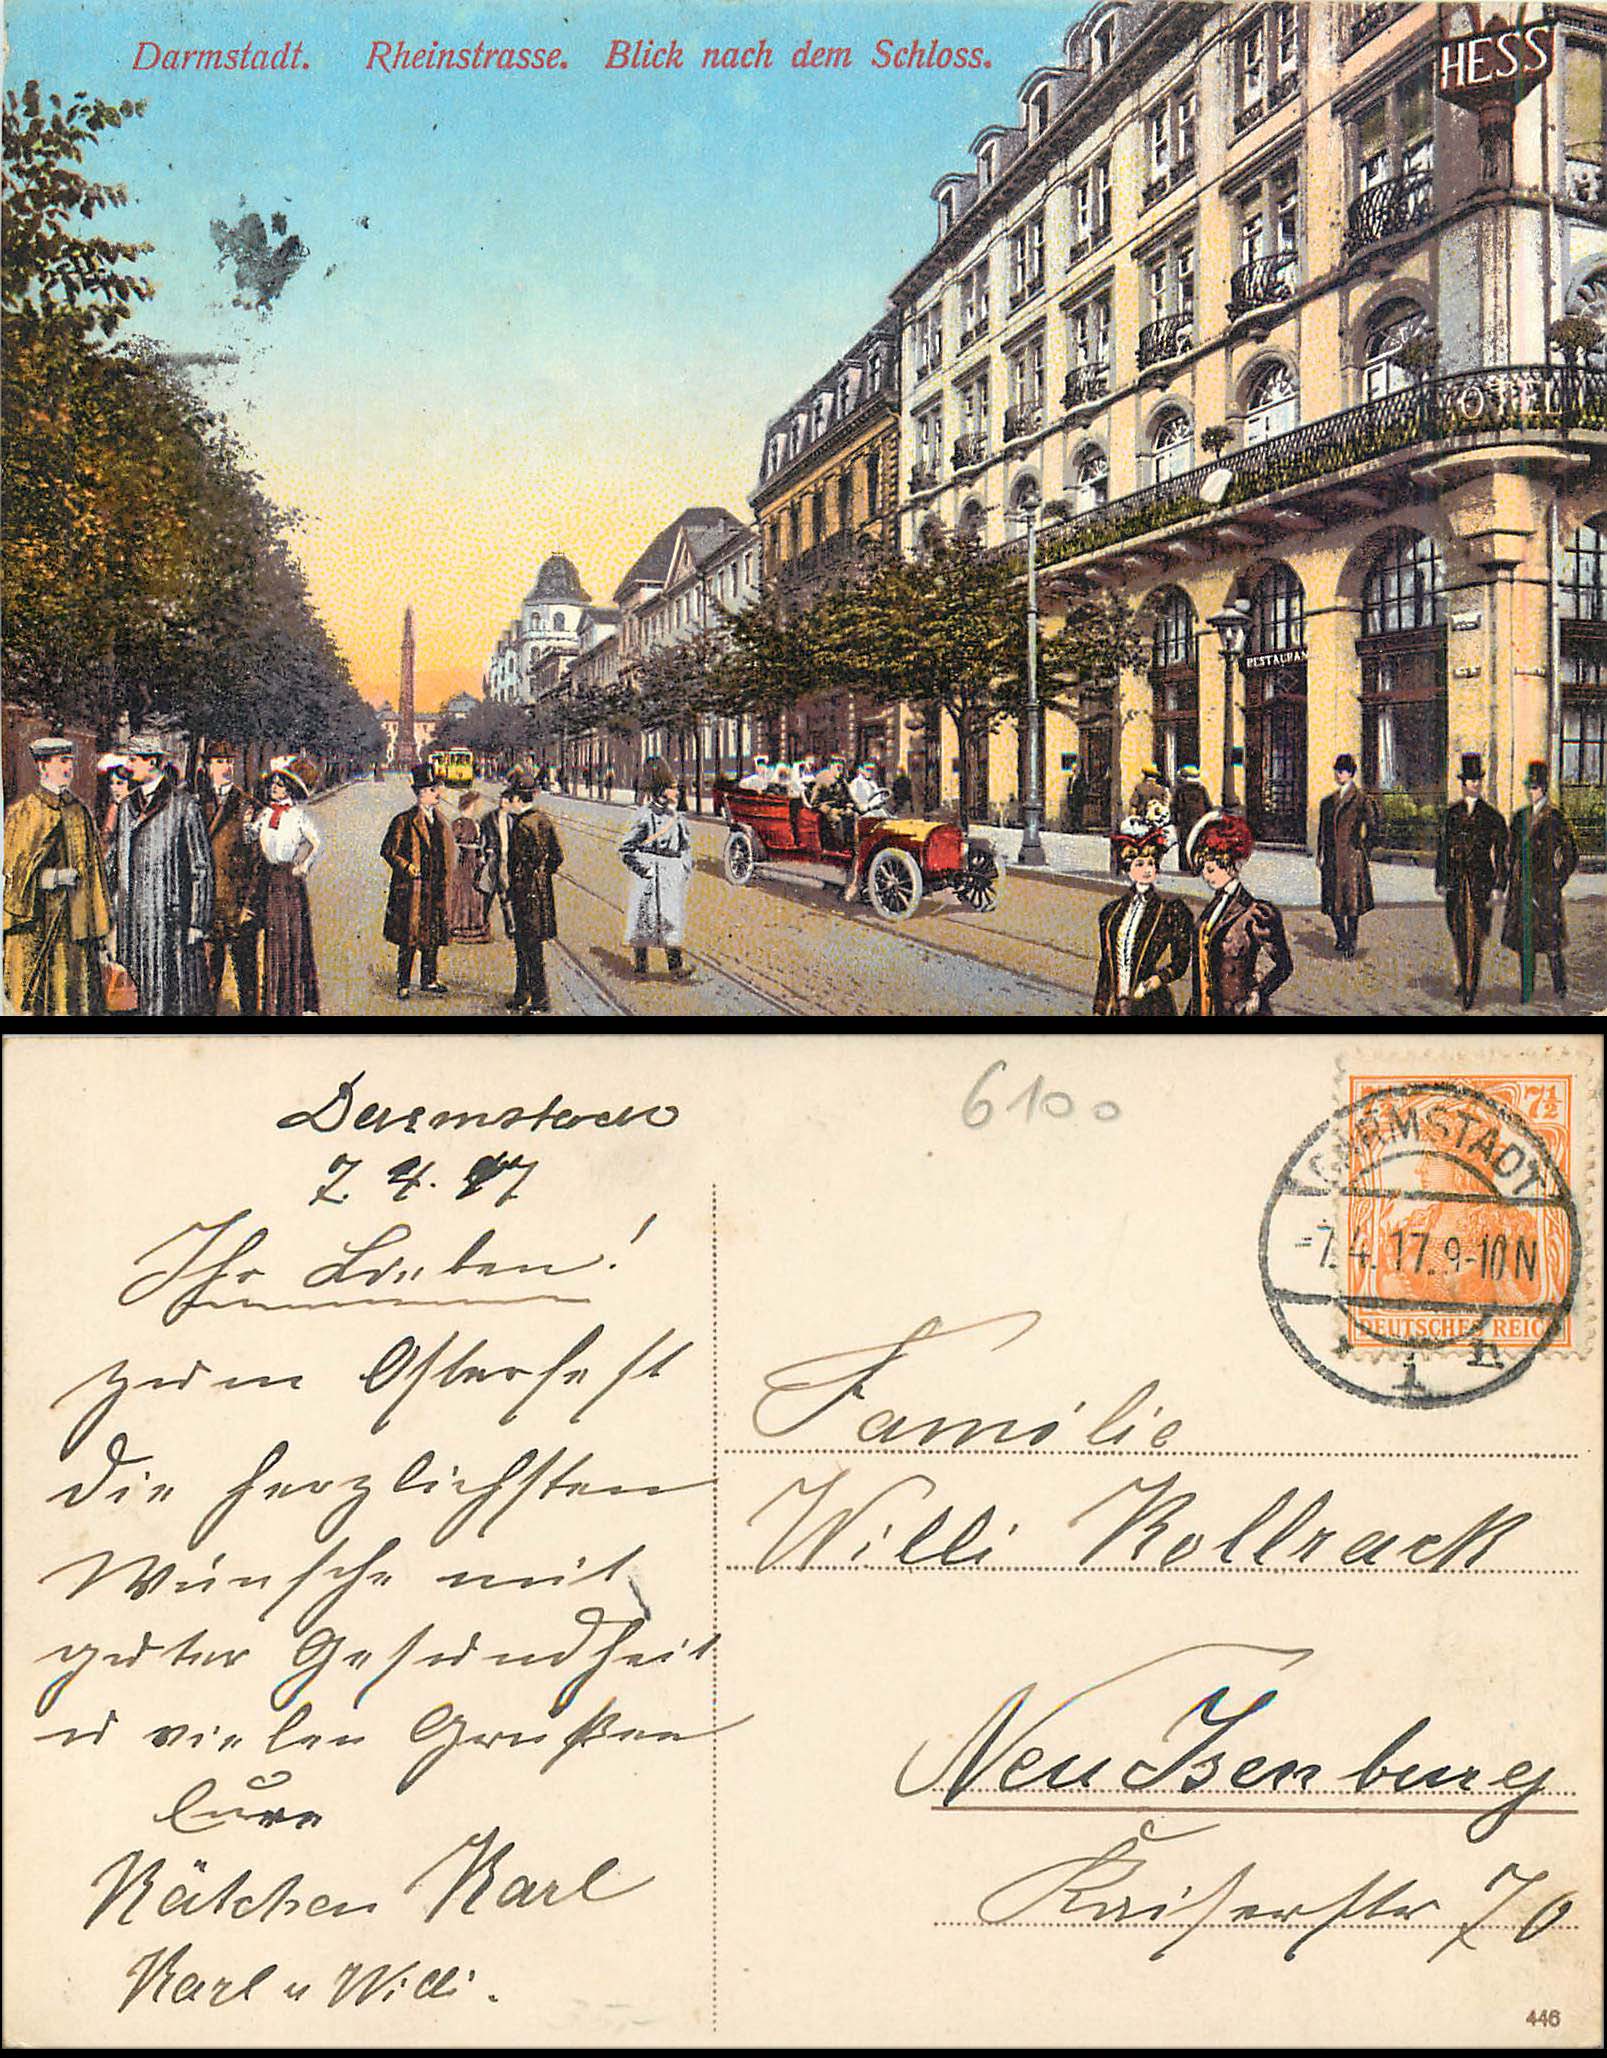 Darmstadt. Rheinstrasse. Blick nach dem Schloss.
HESS
OTEL
RESTAURAN
Darmstadt
7. 4. 17
Ihr Lieben!
zum Osterfest
die herzlichsten
Wünsche mit
guter Gesundheit
u vielen Grüßen
Eure
Kätchen Karl
Karl u Willi.
6100
7½
DARMSTADT
-7.4.17.9-10N
* 1 n
DEUTSCHES REICH
Familie
Willi Kollrack
Neu Isenburg
Kaiserstr 70
446